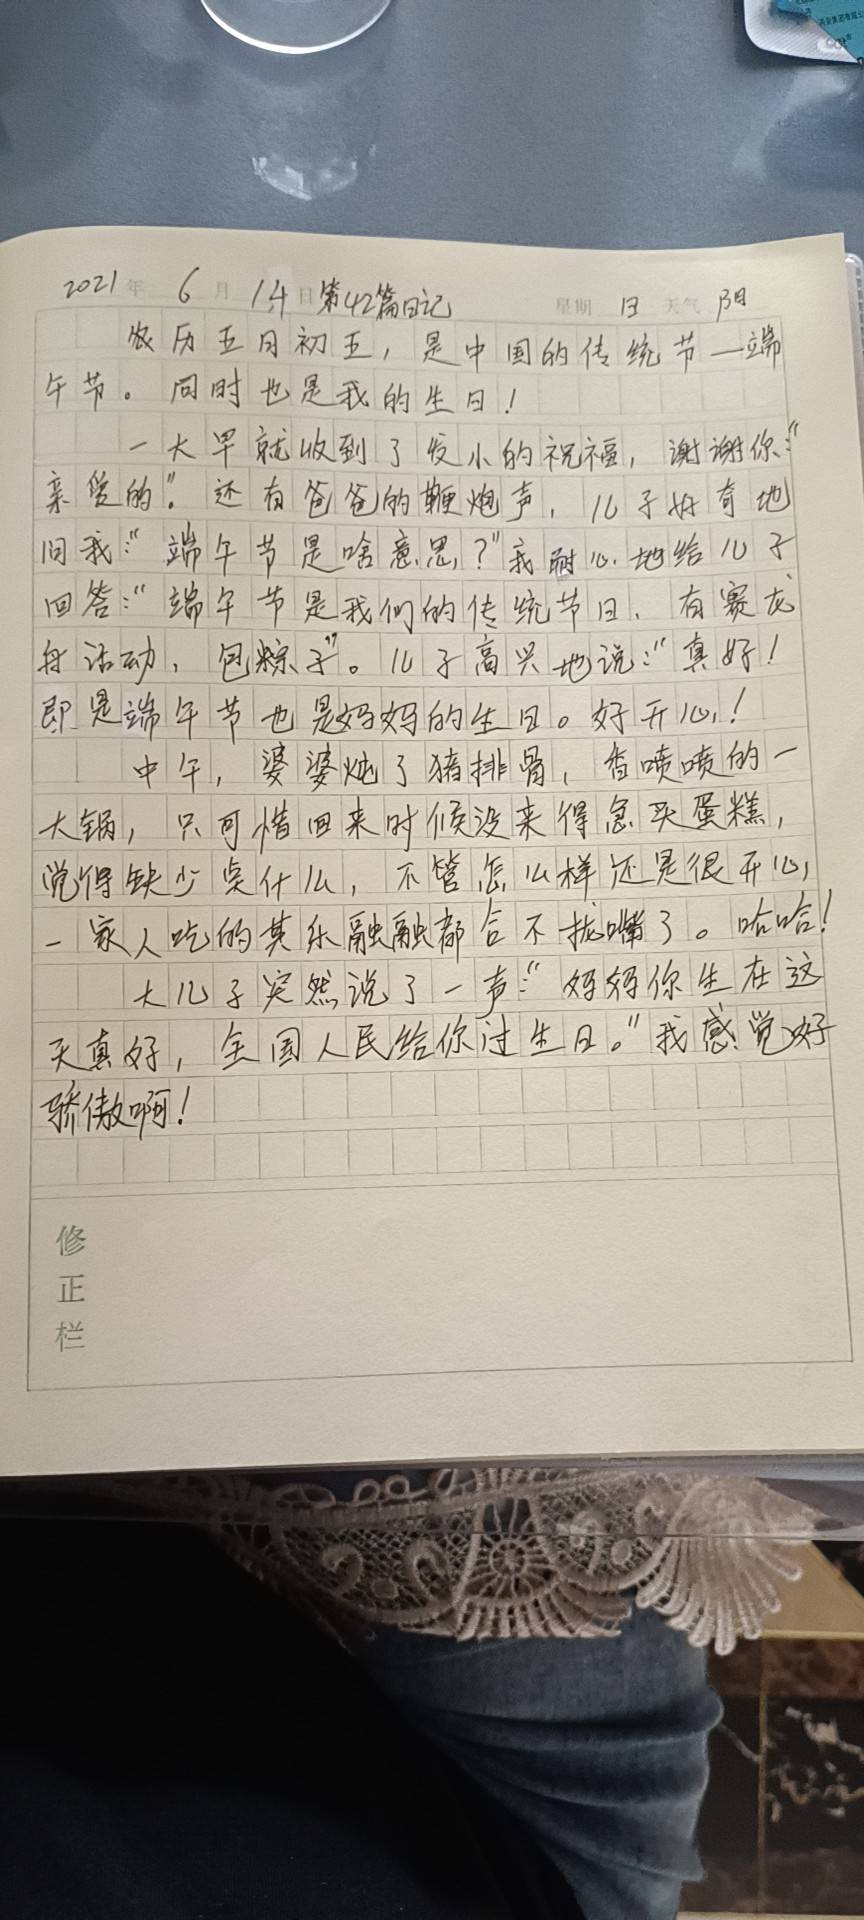 2021年 6月 14日第42篇日记 星期 日 天气 阳
农历五月初五，是中国的传统节—端
午节。同时也是我的生日！
一大早就收到了发小的祝福，谢谢你：“
亲爱的”。还有爸爸的鞭炮声，儿子好奇地
问我：“端午节是啥意思？”我耐心地给儿子
回答：“端午节是我们的传统节日、有赛龙
舟活动、包粽子”。儿子高兴地说：“真好！
即是端午节也是妈妈的生日。好开心！
中午，婆婆炖了猪排骨，香喷喷的一
大锅，只可惜回来时候没来得急买蛋糕，
觉得缺少点什么，不管怎么样还是很开心，
一家人吃的其乐融融都合不拢嘴了。哈哈！
大儿子突然说了一声：“妈妈你生在这
天真好，全国人民给你过生日。”我感觉好
骄傲啊！
修
正
栏